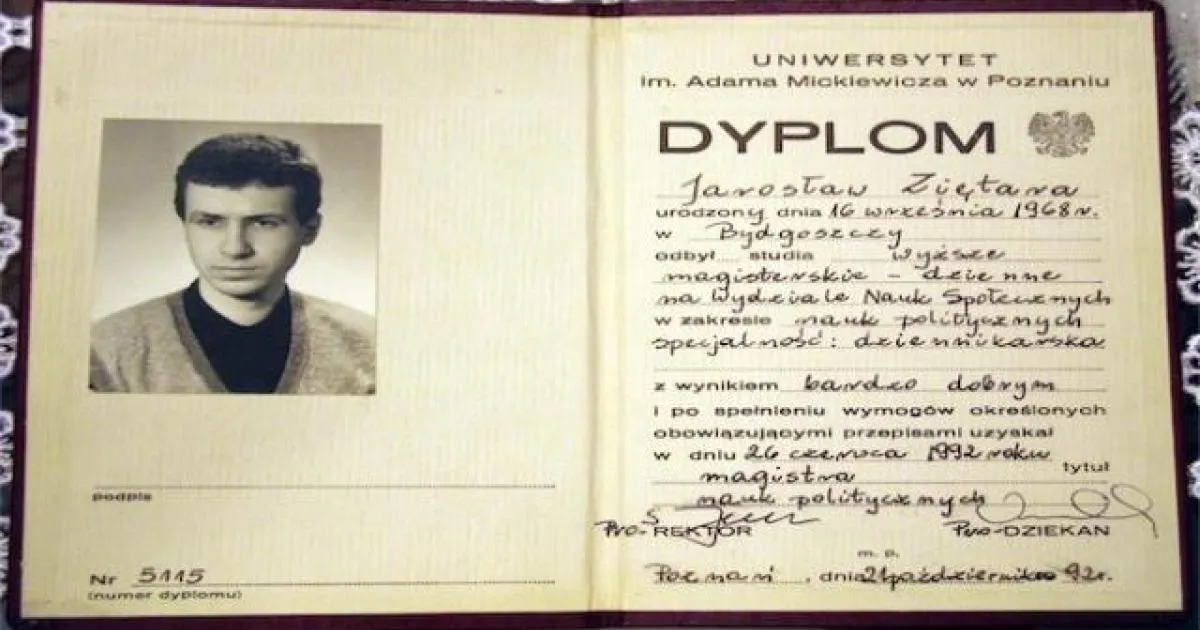 podpis
Nr 5115
(numer dyplomu)
UNIWERSYTET
im. Adama Mickiewicza w Poznaniu
DYPLOM
Jarosław Ziętara
urodzony dnia 16 września 1968 r.
w Bydgoszczy
odbył studia wyższe
magisterskie - dzienne
na Wydziale Nauk Społecznych
w zakresie nauk politycznych
specjalność: dziennikarska
z wynikiem bardzo dobrym
i po spełnieniu wymogów określonych
obowiązującymi przepisami uzyskał
w dniu 26 czerwca 1992 roku
tytuł
magistra
nauk politycznych
Pro-REKTOR Pro-DZIEKAN
m. p.
Poznań, dnia 21 października 92r.